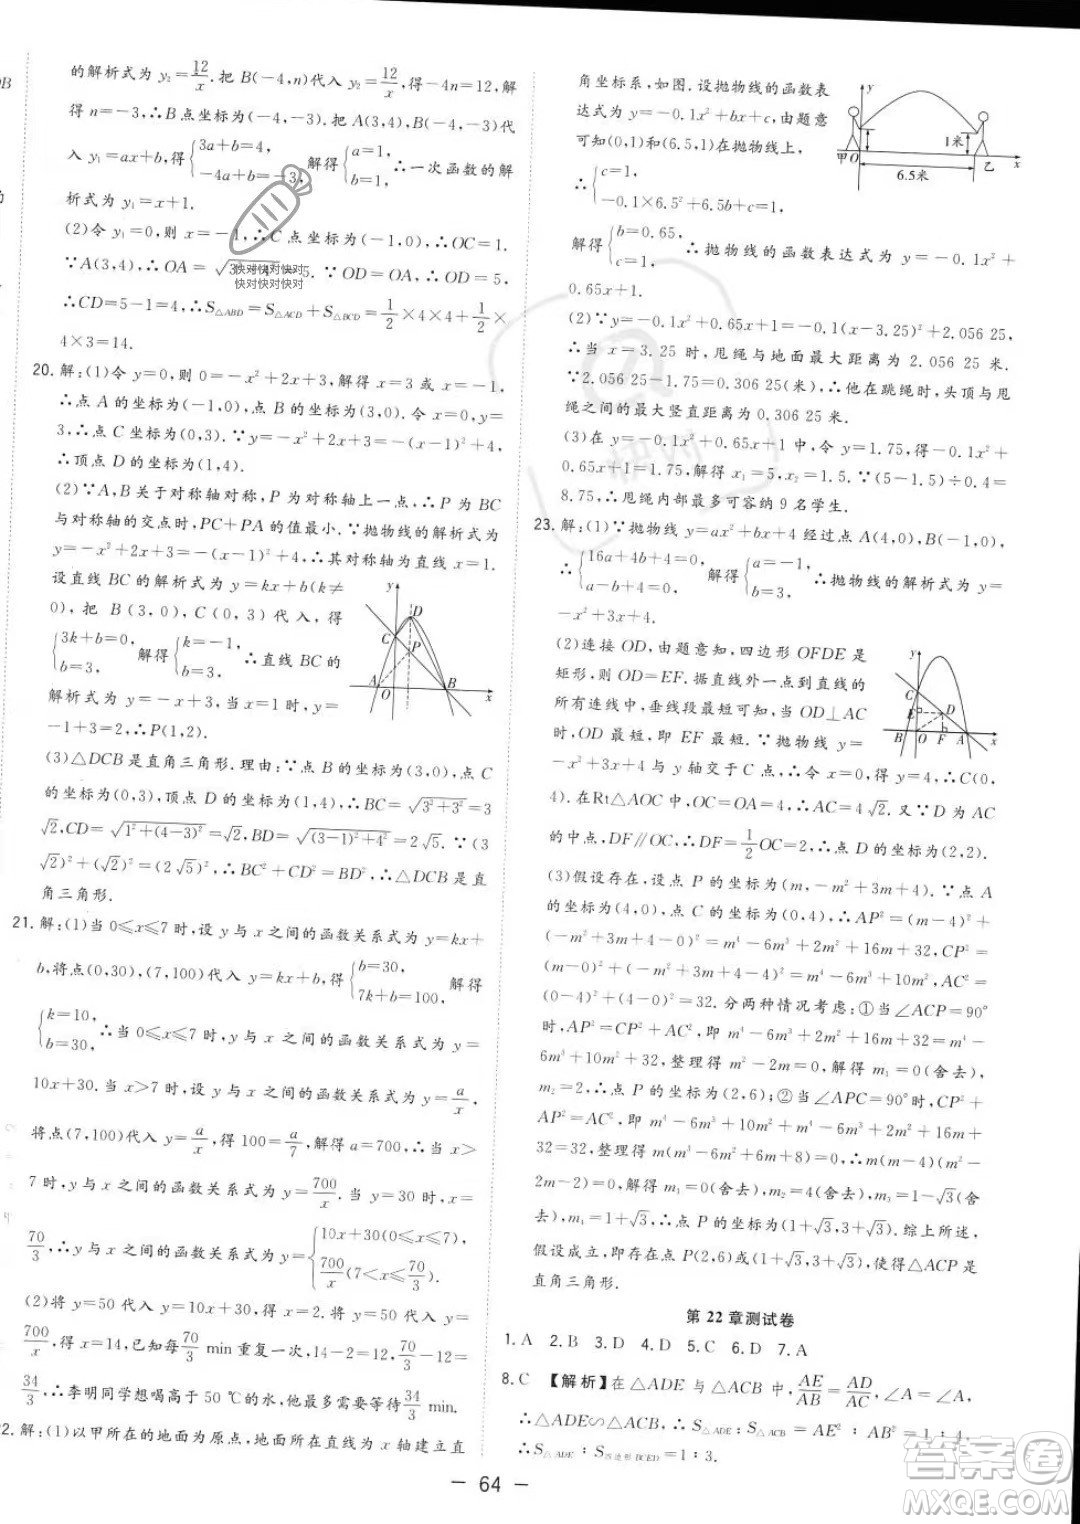 的解析式为 y₂=12/x. 把 B(-4,n)代入 y₂=12/x, 得-4n=12,解
得 n=-3,∴B 点坐标为(-4,-3). 把 A(3,4),B(-4,-3)代
入 y₁=ax+b,得{3a+b=4, -4a+b=-3, 解得{a=1, b=1. ∴一次函数的解
析式为 y₁=x+1.
(2)令 y₁=0,则 x=-1,∴C 点坐标为(-1,0),∴OC=1.
∵A(3,4),∴OA= 5. ∵OD=OA,∴OD=5,
∴CD=5-1=4,∴S△ABD=S△ACD+S△BCD=1/2×4×4+1/2×
4×3=14.
20. 解:(1)令 y=0,则 0=-x²+2x+3,解得 x=3 或 x=-1,
∴点 A 的坐标为(-1,0),点 B 的坐标为(3,0). 令 x=0,y=
3,∴点 C 坐标为(0,3). ∵y=-x²+2x+3=-(x-1)²+4,
∴顶点 D 的坐标为(1,4).
(2)∵A,B 关于对称轴对称,∴P 为对称轴上一点,∴P 为 BC
与对称轴的交点时,PC+PA 的值最小. ∵抛物线的解析式为
y=-x²+2x+3=-(x-1)²+4,∴其对称轴为直线 x=1.
设直线 BC 的解析式为 y=kx+b(k≠
0),把 B(3,0),C(0,3)代入,得
{3k+b=0, b=3, 解得{k=-1, b=3. ∴直线 BC 的
解析式为 y=-x+3. 当 x=1 时,y=
-1+3=2,∴P(1,2).
y D C P A O B x
(3)△DCB 是直角三角形. 理由:∵点 B 坐标为(3,0),点 C
坐标为(0,3),顶点 D 坐标为(1,4),∴BC=√(3²+3²)=3
√2,CD=√(1²+(4-3)²)=√2,BD=√((3-1)²+4²)=2√5. ∵(3
√2)²+(√2)²=(2√5)²,∴BC²+CD²=BD²,∴△DCB 是直
角三角形.
21. 解:(1)当 0≤x≤7 时,设 y 与 x 之间的函数关系式为 y=kx+
b,将点(0,30),(7,100)代入 y=kx+b,得{b=30, 7k+b=100. 解得
{k=10, b=30. ∴当 0≤x≤7 时,y 与 x 之间的函数关系式为 y=
10x+30. 当 x>7 时,设 y 与 x 之间的函数关系式为 y=a/x,
将点(7,100)代入 y=a/x,得 100=a/7,解得 a=700,∴当 x>
7 时,y 与 x 之间的函数关系式为 y=700/x. 当 y=30 时,x=
70/3,∴y 与 x 之间的函数关系式为 y={10x+30(0≤x≤7), 700/x(7<x≤70/3).
(2)将 y=50 代入 y=10x+30,得 x=2,将 y=50 代入 y=
700/x,得 x=14,已知每70/3 min 重复一次,14-2=12,70/3-12=
34/3,∴李明同学想喝高于 50 ℃的水,他最多需要等待34/3 min.
22. 解:(1)以甲所在的地面为原点,地面所在直线为 x 轴建立直
角坐标系,如图. 设抛物线的函数表
达式为 y=-0.1x²+bx+c,由题意
可知(0,1)和(6.5,1)在抛物线上,
∴{c=1, -0.1×6.5²+6.5b+c=1,
y 1米 甲 O 乙 x 6.5米
解得{b=0.65, c=1. ∴抛物线的函数表达式为 y=-0.1x²+
0.65x+1.
(2)∵y=-0.1x²+0.65x+1=-0.1(x-3.25)²+2.056 25,
∴当 x=3.25 时,甩绳与地面最大距离为 2.056 25 米.
∵2.056 25-1.75=0.306 25(米),∴他在跳绳时,头顶与甩
绳之间的最大竖直距离为 0.306 25 米.
(3)在 y=-0.1x²+0.65x+1 中,令 y=1.75,得-0.1x²+
0.65x+1=1.75,解得 x₁=5,x₂=1.5. ∵(5-1.5)÷0.4=
8.75,∴甩绳内部最多可容纳 9 名学生.
23. 解:(1)∵抛物线 y=ax²+bx+4 经过点 A(4,0),B(-1,0),
∴{16a+4b+4=0, a-b+4=0, 解得{a=-1, b=3. ∴抛物线的解析式为 y=
-x²+3x+4.
(2)连接 OD,由题意知,四边形 OFDE 是
矩形,则 OD=EF. 据直线外一点到直线的
所有连线中,垂线段最短可知,当 OD⊥AC
时,OD 最短,即 EF 最短. ∵抛物线 y=
-x²+3x+4 与 y 轴交于 C 点,∴C(0,
y C E D B O F A x
4). 在Rt△AOC 中,∵OC=OA=4,∴AC=4√2. 又∵D 为 AC
的中点,DF∥OC,∴DF=1/2OC=2,∴点 D 的坐标为(2,2).
(3)假设存在,设点 P 的坐标为(m,-m²+3m+4). ∵点 A
的坐标为(4,0),点 C 的坐标为(0,4),∴AP²=(m-4)²+
(-m²+3m+4-0)²=m⁴-6m³+2m²+16m+32,CP²=
(m-0)²+(-m²+3m+4-4)²=m⁴-6m³+10m²,AC²=
(0-4)²+(4-0)²=32. 分两种情况考虑:①当∠ACP=90°
时,AP²=CP²+AC²,即 m⁴-6m³+2m²+16m+32=m⁴-
6m³+10m²+32,整理得 m²-2m=0,解得 m₁=0(舍去),
m₂=2,∴点 P 的坐标为(2,6);②当∠APC=90°时,CP²+
AP²=AC²,即 m⁴-6m³+10m²+m⁴-6m³+2m²+16m+
32=32,整理得 m(m³-6m²+6m+8)=0,∴m(m-4)(m²-
2m-2)=0,解得 m₁=0(舍去),m₂=4(舍去),m₃=1-√3(舍
去),m₄=1+√3,∴点 P 的坐标为(1+√3,3+√3). 综上所述,
假设成立,即存在点 P(2,6)或(1+√3,3+√3),使得△ACP 是
直角三角形.
第 22 章测试卷
1. A 2. B 3. D 4. D 5. C 6. D 7. A
8. C 【解析】在△ADE 与△ACB 中,AE/AB=AD/AC,∠A=∠A,
∴△ADE∽△ACB,∴S△ADE:S△ACB=AE²:AB²=1:4,
∴S△ADE:S四边形BCED=1:3.
— 64 —
快对快对快对
快对快对快对
快对
答案圈
MXQE.COM